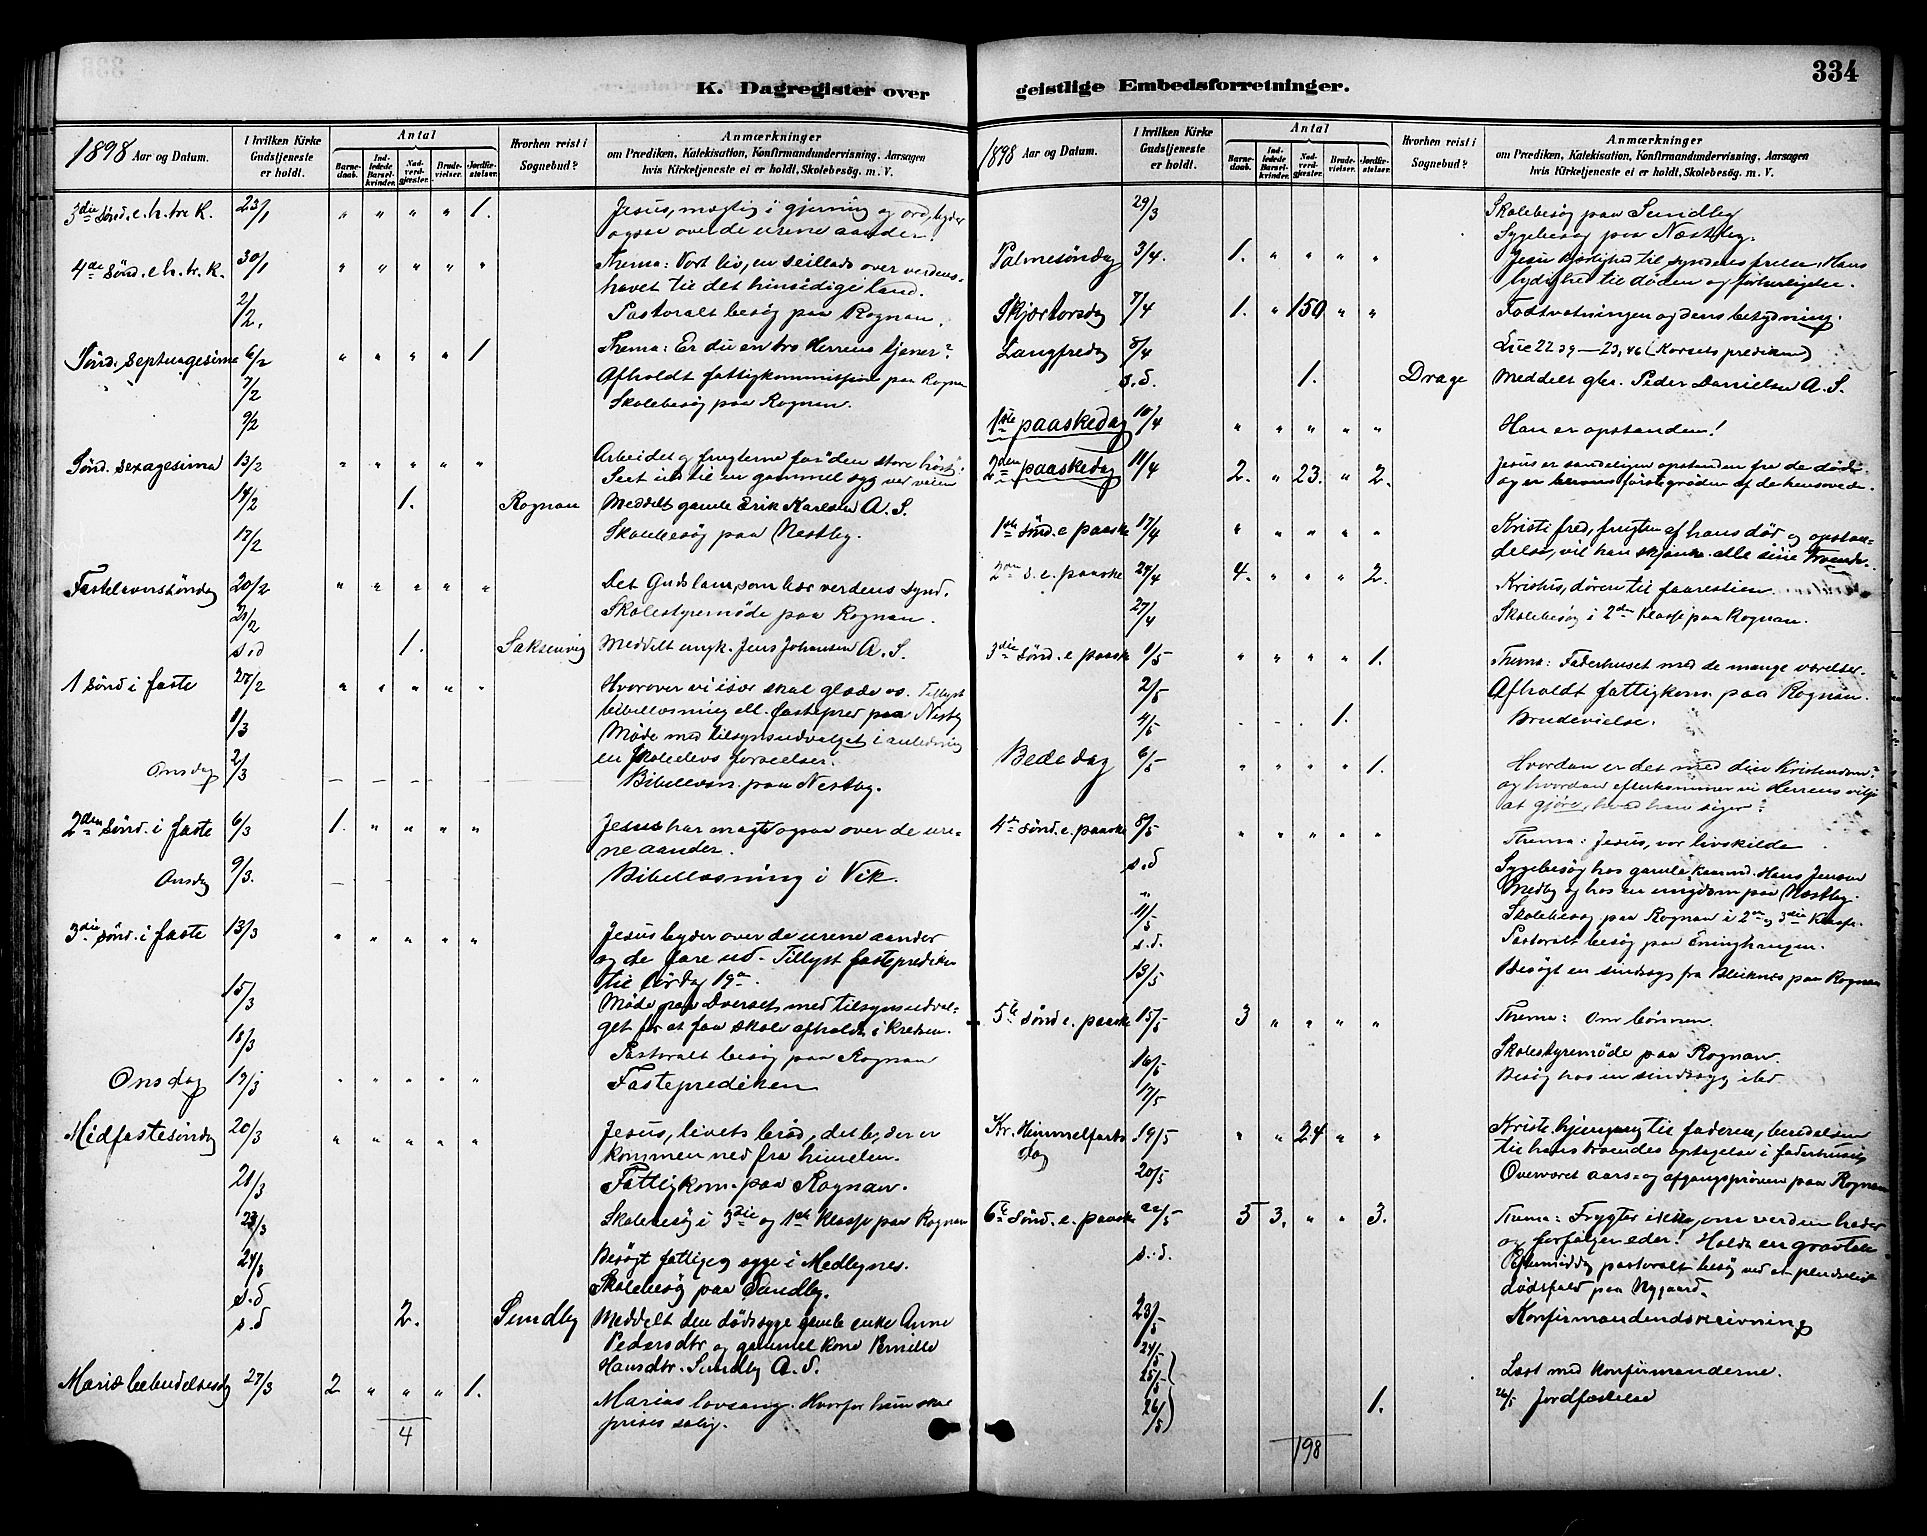 334
K. Dagregister over
1898 Aar og Datum.
I hvilken Kirke Gudstjeneste er holdt.
Antal
Barnedaab.
Indledede Barselkvinder.
Nadverdgjæster.
Brudevielser.
Jordfæstelser.
Hvorhen reist i Sognebud?
Anmærkninger
om Prædiken, Katekisation, Konfirmandundervisning, Aarsagen
hvis Kirketjeneste ei er holdt, Skolebesøg. m. V.
3die Sønd. e. h. tre K. 23/1 " " " " 1. Jesus, mægtig i gjerning og ord, byder
ogsaa over de urene aander.
4de Sønd. e h. tr. K. 30/1 " " " " " Thema: Vort liv, en seillads over verdens-
havet til det hinsidige land.
2/2. Pastoralt besøg paa Rognan.
Sønd. septuagesima 6/2 " " " " 1 Thema: Er du en tro Herrens tjener?
7/2 Afholdt fattigkommission paa Rognan
9/2 Skolebesøg paa Rognan.
Sønd. sexagesima 13/2 " " " " " Arbeidet og frugterne for "den store høst".
Seet ind til en gammel syg ved veien
14/2 1. Rognan Meddelt gamle Erik Karlsen A. S.
17/2 Skolebesøg paa Nestby.
Fastelavnssøndag 20/2 " " " " " Det Guds lam, som bær verdens synd.
21/2 Skolestyremøde paa Rognan.
s.d 1. Saksenvig Meddelt ungk. Jens Johansen A. S.
1 sønd i faste 27/2 " " " " " Hvorover vi især skal glæde os. Tillyst
bibellæsning ell. fastepred paa Nestby
1/3 Møde med tilsynsudvalget i anledning
en skoleelevs forseelser.
Onsdag 2/3 Bibellæsn. paa Nestby.
2den sønd. i faste 6/3 1. " " " " Jesus har magt ogsaa over de ure-
ne aander.
Onsdag 9/3. Bibellæsning i Vik.
3die sønd. i faste 13/3 " " " " " Jesus byder over de urene aander
og de fare ud. Tillyst fasteprediken
til lørdag 19de.
15/3 Møde paa Dverset med tilsynsudval-
get for at faa skole afholdt i kredsen.
18/3 Pastoralt besøg paa Rognan
Onsdag 19/3 " " " " " Fasteprediken
Midfastesøndag 20/3 " " " " " Jesus, livets brød, dette, der er
kommen ned fra himelen.
21/3 Fattigkom. paa Rognan.
23/3 Skolebesøg i 3die og 1ste klasse paa Rognan
24/3 Besøgt fattige og syge i Medbynes.
s.d Skolebesøg paa Sundby.
s.d 2. Sundby Meddelt den dødssyge gamle enke Anne
Pedersdtr og gammel kone Pernille
Hansdtr. Sundby A. S.
Mariæ bebudelsesdag 27/3 2 " " " 1. Marias lovsang. Hvorfor hun skal
prises salig.
4
geistlige Embedsforretninger.
1898 Aar og Datum.
I hvilken Kirke Gudstjeneste er holdt.
Antal
Barnedaab.
Indledede Barselkvinder.
Nadverdgjæster.
Brudevielser.
Jordfæstelser.
Hvorhen reist i Sognebud?
Anmærkninger
om Prædiken, Katekisation, Konfirmandundervisning, Aarsagen
hvis Kirketjeneste ei er holdt, Skolebesøg. m. V.
29/3 Skolebesøg paa Sundby
Sygebesøg paa Næstby.
Palmesøndag 3/4. 1. " " " " Jesu kjærlighed til synderes frelse: Hans
lydighed til døden og forherligelse.
Skjærtorsdag 7/4 1. " 150 " " Fodtvætningen og dens betydning.
Langfredag 8/4 Luc 22 39 — 23,46 (Korsets prediken)
s.d. 1. Drage Meddelt gbr. Peder Danielsen A. S.
1ste paaskedag 10/4 " " " " " Han er opstanden!
2den paaskedag 11/4 2. " 23. " 2. Jesus er sandeligen opstanden fra de døde
og er bleven førstegrøden af de hensovede.
1ste sønd. e paaske 17/4 " " " " " Kristi fred, frugten af hans død og opstan-
delse, vil han skjænke alle sine troende.
2den s. e. paaske 24/4 4. " " " 2. Kristus, døren til faarestien.
27/4 Skolebesøg i 2den klasse paa Rognan.
3die sønd. e paaske 1/5 " " " " 1. Thema: Faderhuset med de mange værelser.
2/5 Afholdt fattigkom. paa Rognan.
4/5 1. Brudevielse.
Bededag 6/5 " " " " 1. Hvordan er det med din kristendom?
og hvordan efterkommer vi Herrens vilje
at gjøre, hvad han siger?
4de sønd. e. paaske 8/5 " " " " " Thema: Jesus, vor livskilde
s.d Sygebesøg hos gamle kaarmd. Hans Jensen
Medby og hos en ungdom paa Nestby.
11/5 Skolebesøg paa Rognan i 2den og 3die Klasse.
s.d. Pastoralt besøg paa Eninghaugen.
13/5 Besøgt en sindssyg fra Bleiknes paa Rognan
5te sønd e. paaske 15/5 3 " " " " Thema: Om bønnen.
16/5 Skolestyremøde paa Rognan.
17/5 Besøg hos en sindssyg ibd.
Kr. Himmelfarts dag 19/5 " " 24 " " Kristi hjemgang til faderen, beredelsen
til hans troendes optagelse i faderhuset
20/5 Overværet aars- og afgangsprøven paa Rognan
6te sønd. e. paaske 22/5 5 3. " " 3. Thema: Frygter ikke, om verden hader
og forfølger eder! Holdt en gravtale
s.d. Eftermiddag pastoralt besøg ved et pludseligt
dødsfald paa Nygaard.
23/5 Konfirmandindskrivning
24/5
25/5 Læst med konfirmanderne.
26/5 1. 26/5 Jordfæstelse
198